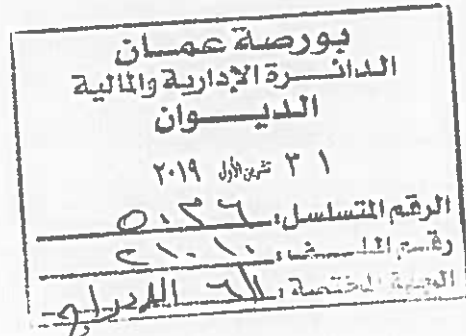 بورصة عمان
الدائرة الإدارية والمالية
الديوان
٣١ تشرين الأول ٢٠١٩
الرقم المتسلسل: ٥٠٣٦
رقم الملف: ٢١٠١٠
الجهة المختصة: